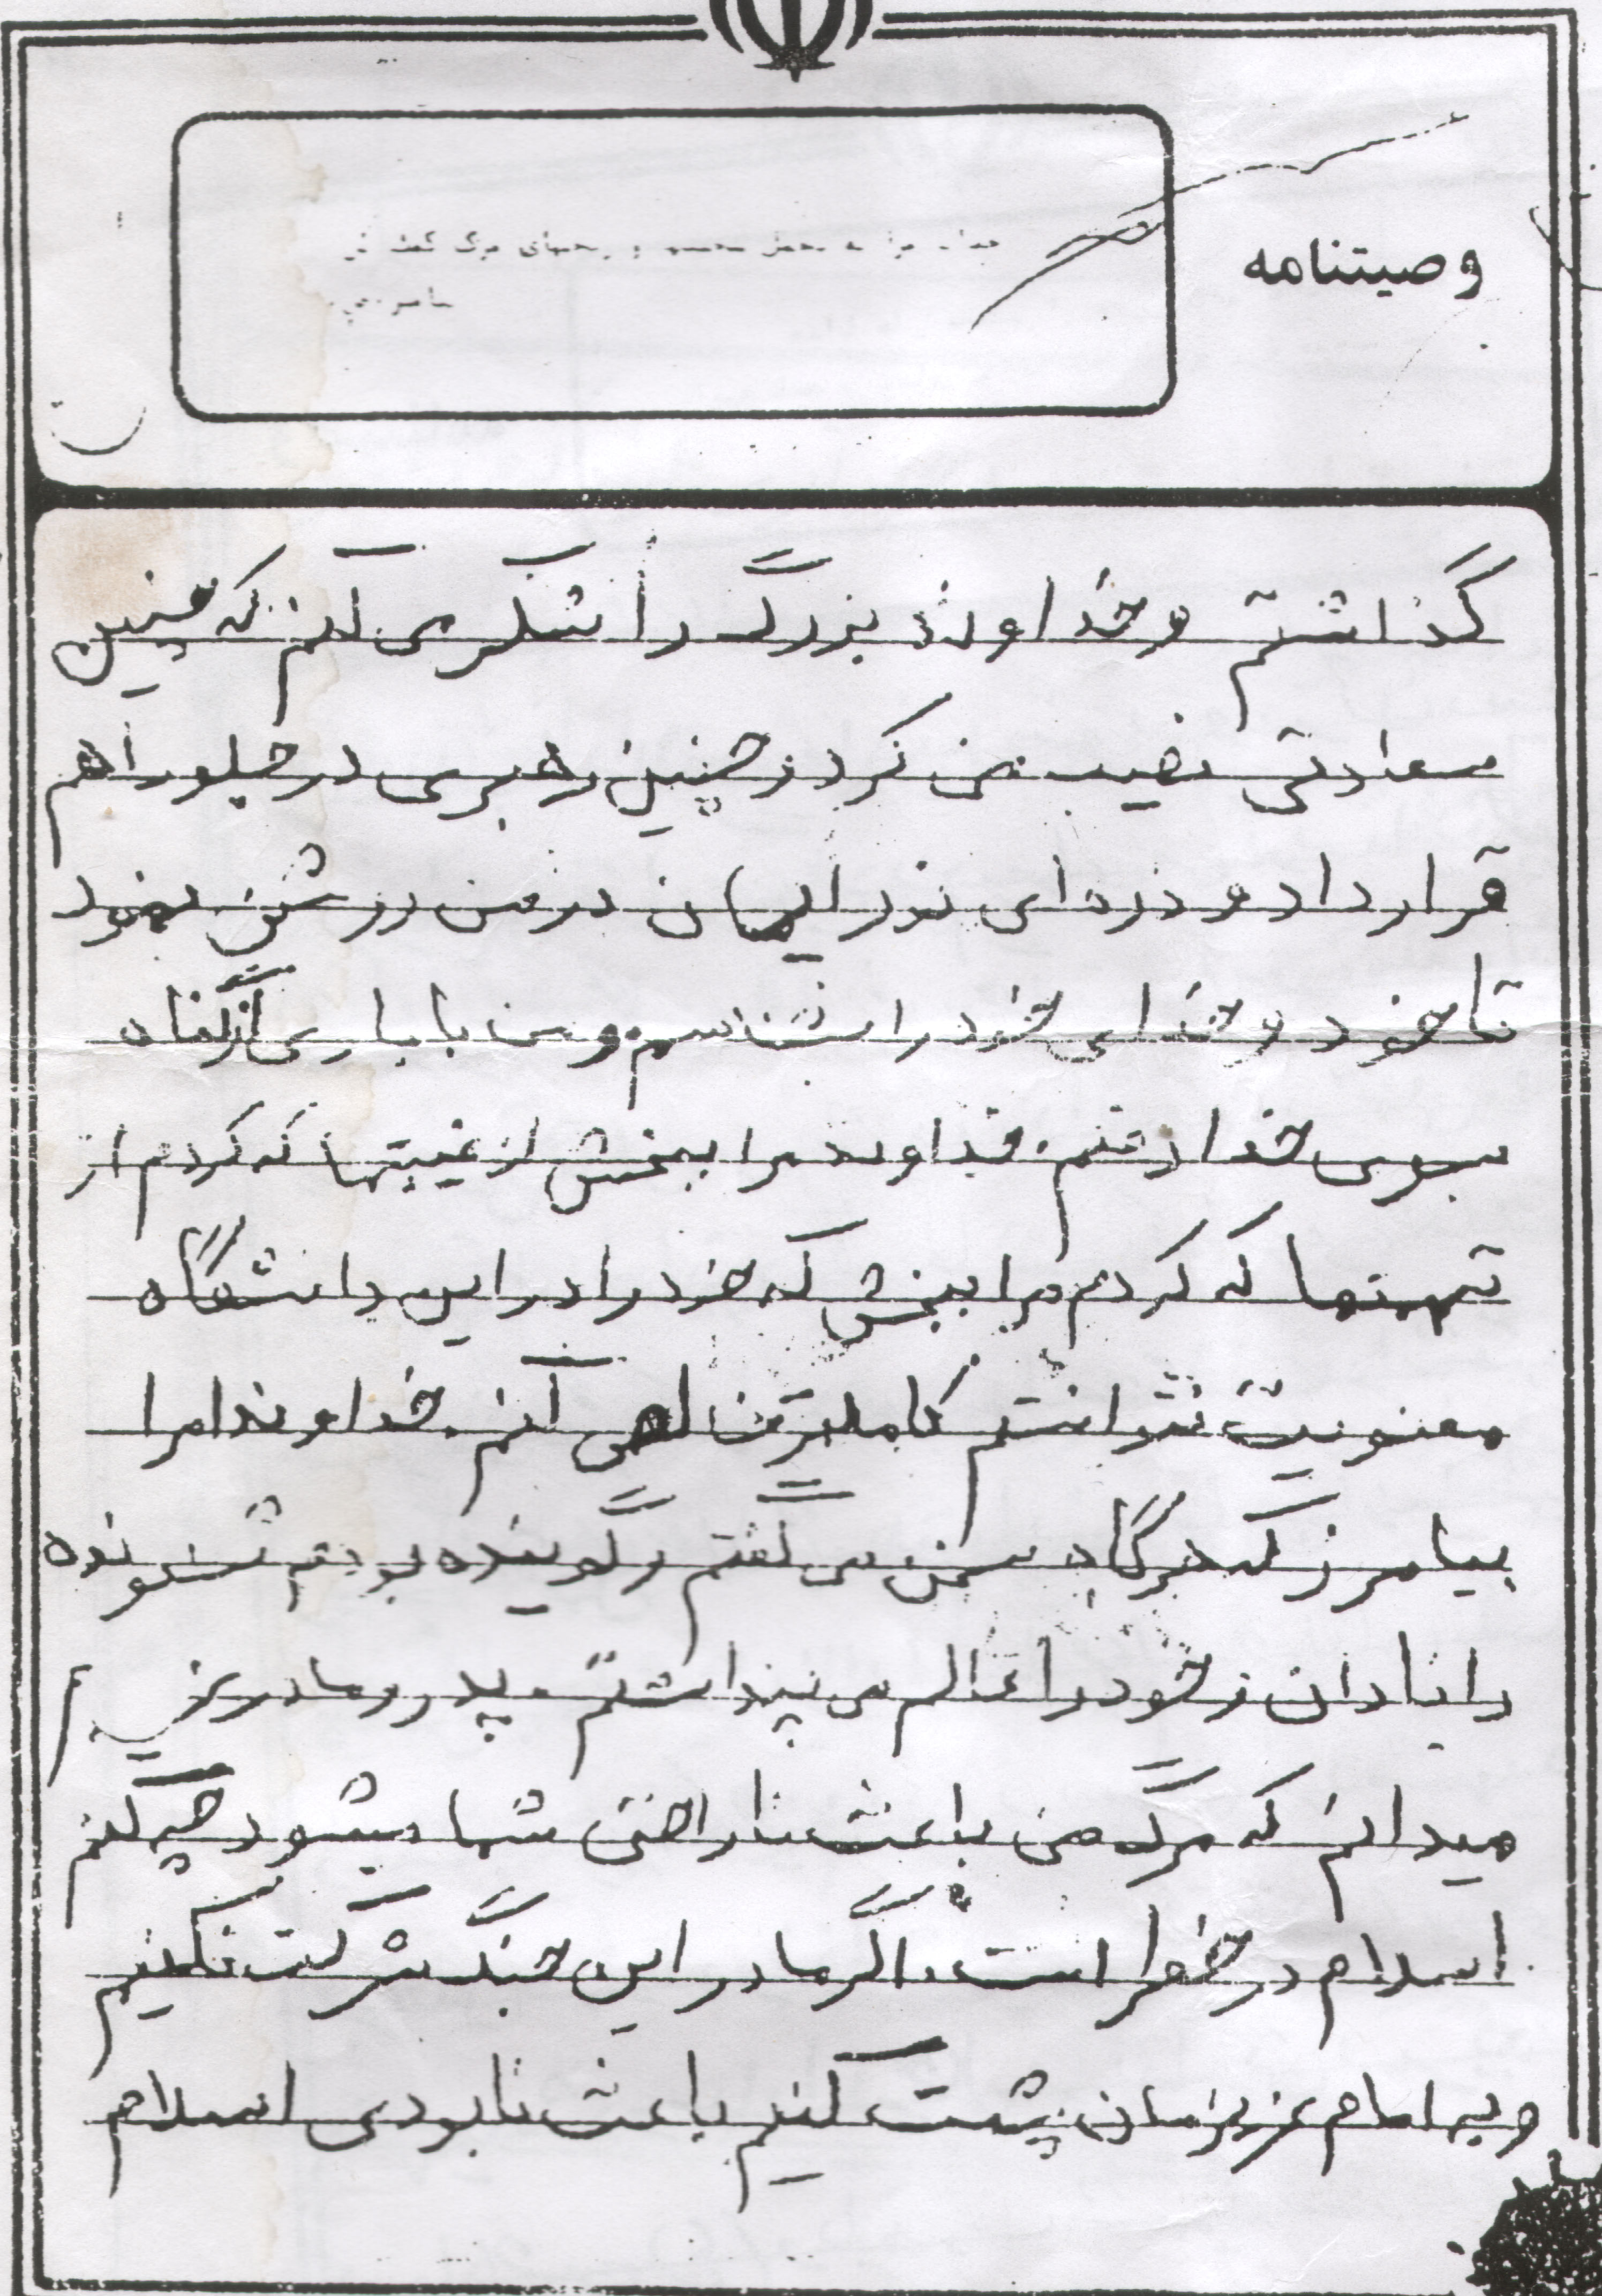 وصیتنامه
گذاشتم و خداوند بزرگ را شکر می کنم که چنین
سعادتی نصیب من کرد و چنین رهبری در جلو راهم
قرار داد و ذره ای نور ایمان در من روشن نمود
تا خود و خدای خود را بشناسم و من با باری از گناه
بسوی خدا رفتم. خداوند مرا ببخش از غیبتها که کردم از
تهمتها که کردم مرا ببخش که خود را در این دانشگاه
معنویت نتوانستم کاملتر کنم. خداوندا مرا
بیامرز که هرگاه سخن می گفتم و گوینده بودم شنونده
را نادان و خود را عالم می پنداشتم. پدر و مادر عزیزم
میدانم که مرگ من باعث ناراحتی شما میشود چه کنم
اسلام در خطر است. اگر ما در این جنگ شرکت نکنیم
و به امام عزیزمان پشت کنیم باعث نابودی اسلام